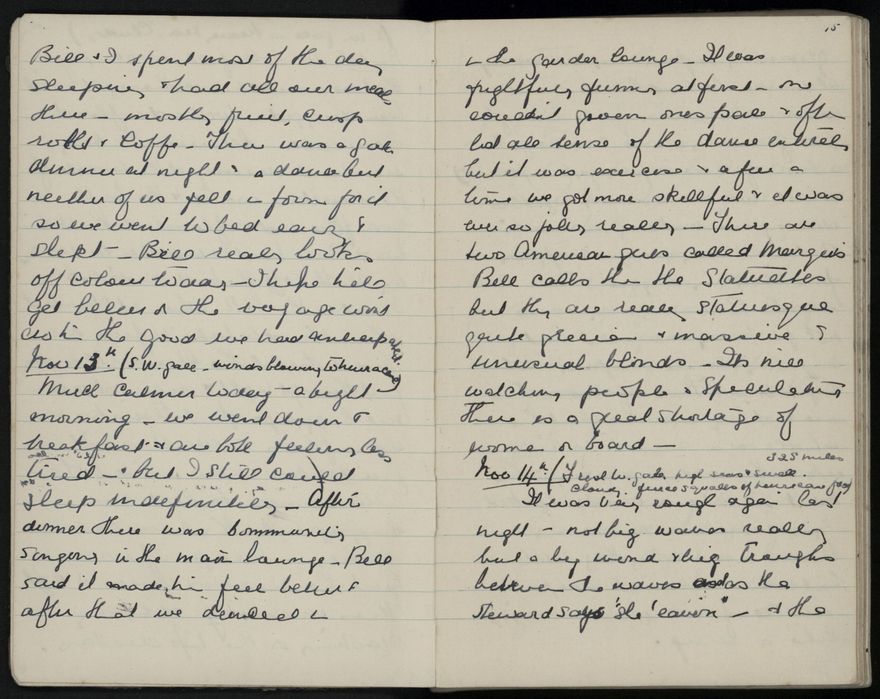 Bill & I spent most of the day
sleeping & had all our meals
there - mostly fruit, crisp
rolls & coffe - There was a gala
dinner at night & a dance but
neither of us felt in form for it
so we went to bed early &
slept - Bill really looks
off colour today - I hope he'll
get better & the voyage won't
undo the good we had
Nov 13th. (S.W. gale - winds blowing to hurricane)
Much calmer today - a bright
morning - we went down to
breakfast & are both feeling less
tired - but I still could
sleep indefinitely - After
dinner there was community
singing in the main lounge - Bill
said it made him feel better &
after that we danced in
15
in the garden lounge - It was
frightfully funny at first - one
couldn't govern ones pace & often
lost all sense of the dance entirely
but it was exercise & after a
time we got more skillful & it was
ever so jolly really - There are
two American girls called Marquis
Bill calls them the Statuettes
but they are really statuesque
quite grecian & massive &
unusual blonds - Its nice
watching people & speculating
There is a great shortage of
women on board -
325 miles
Nov 14th (Fresh W. gale high seas & swell.
Cloudy. fierce squalls of hurricane force)
It was very rough again last
night - not big waves really
but a big wind & big troughs
between the waves and as the
steward says "she 'eavin'" - & the